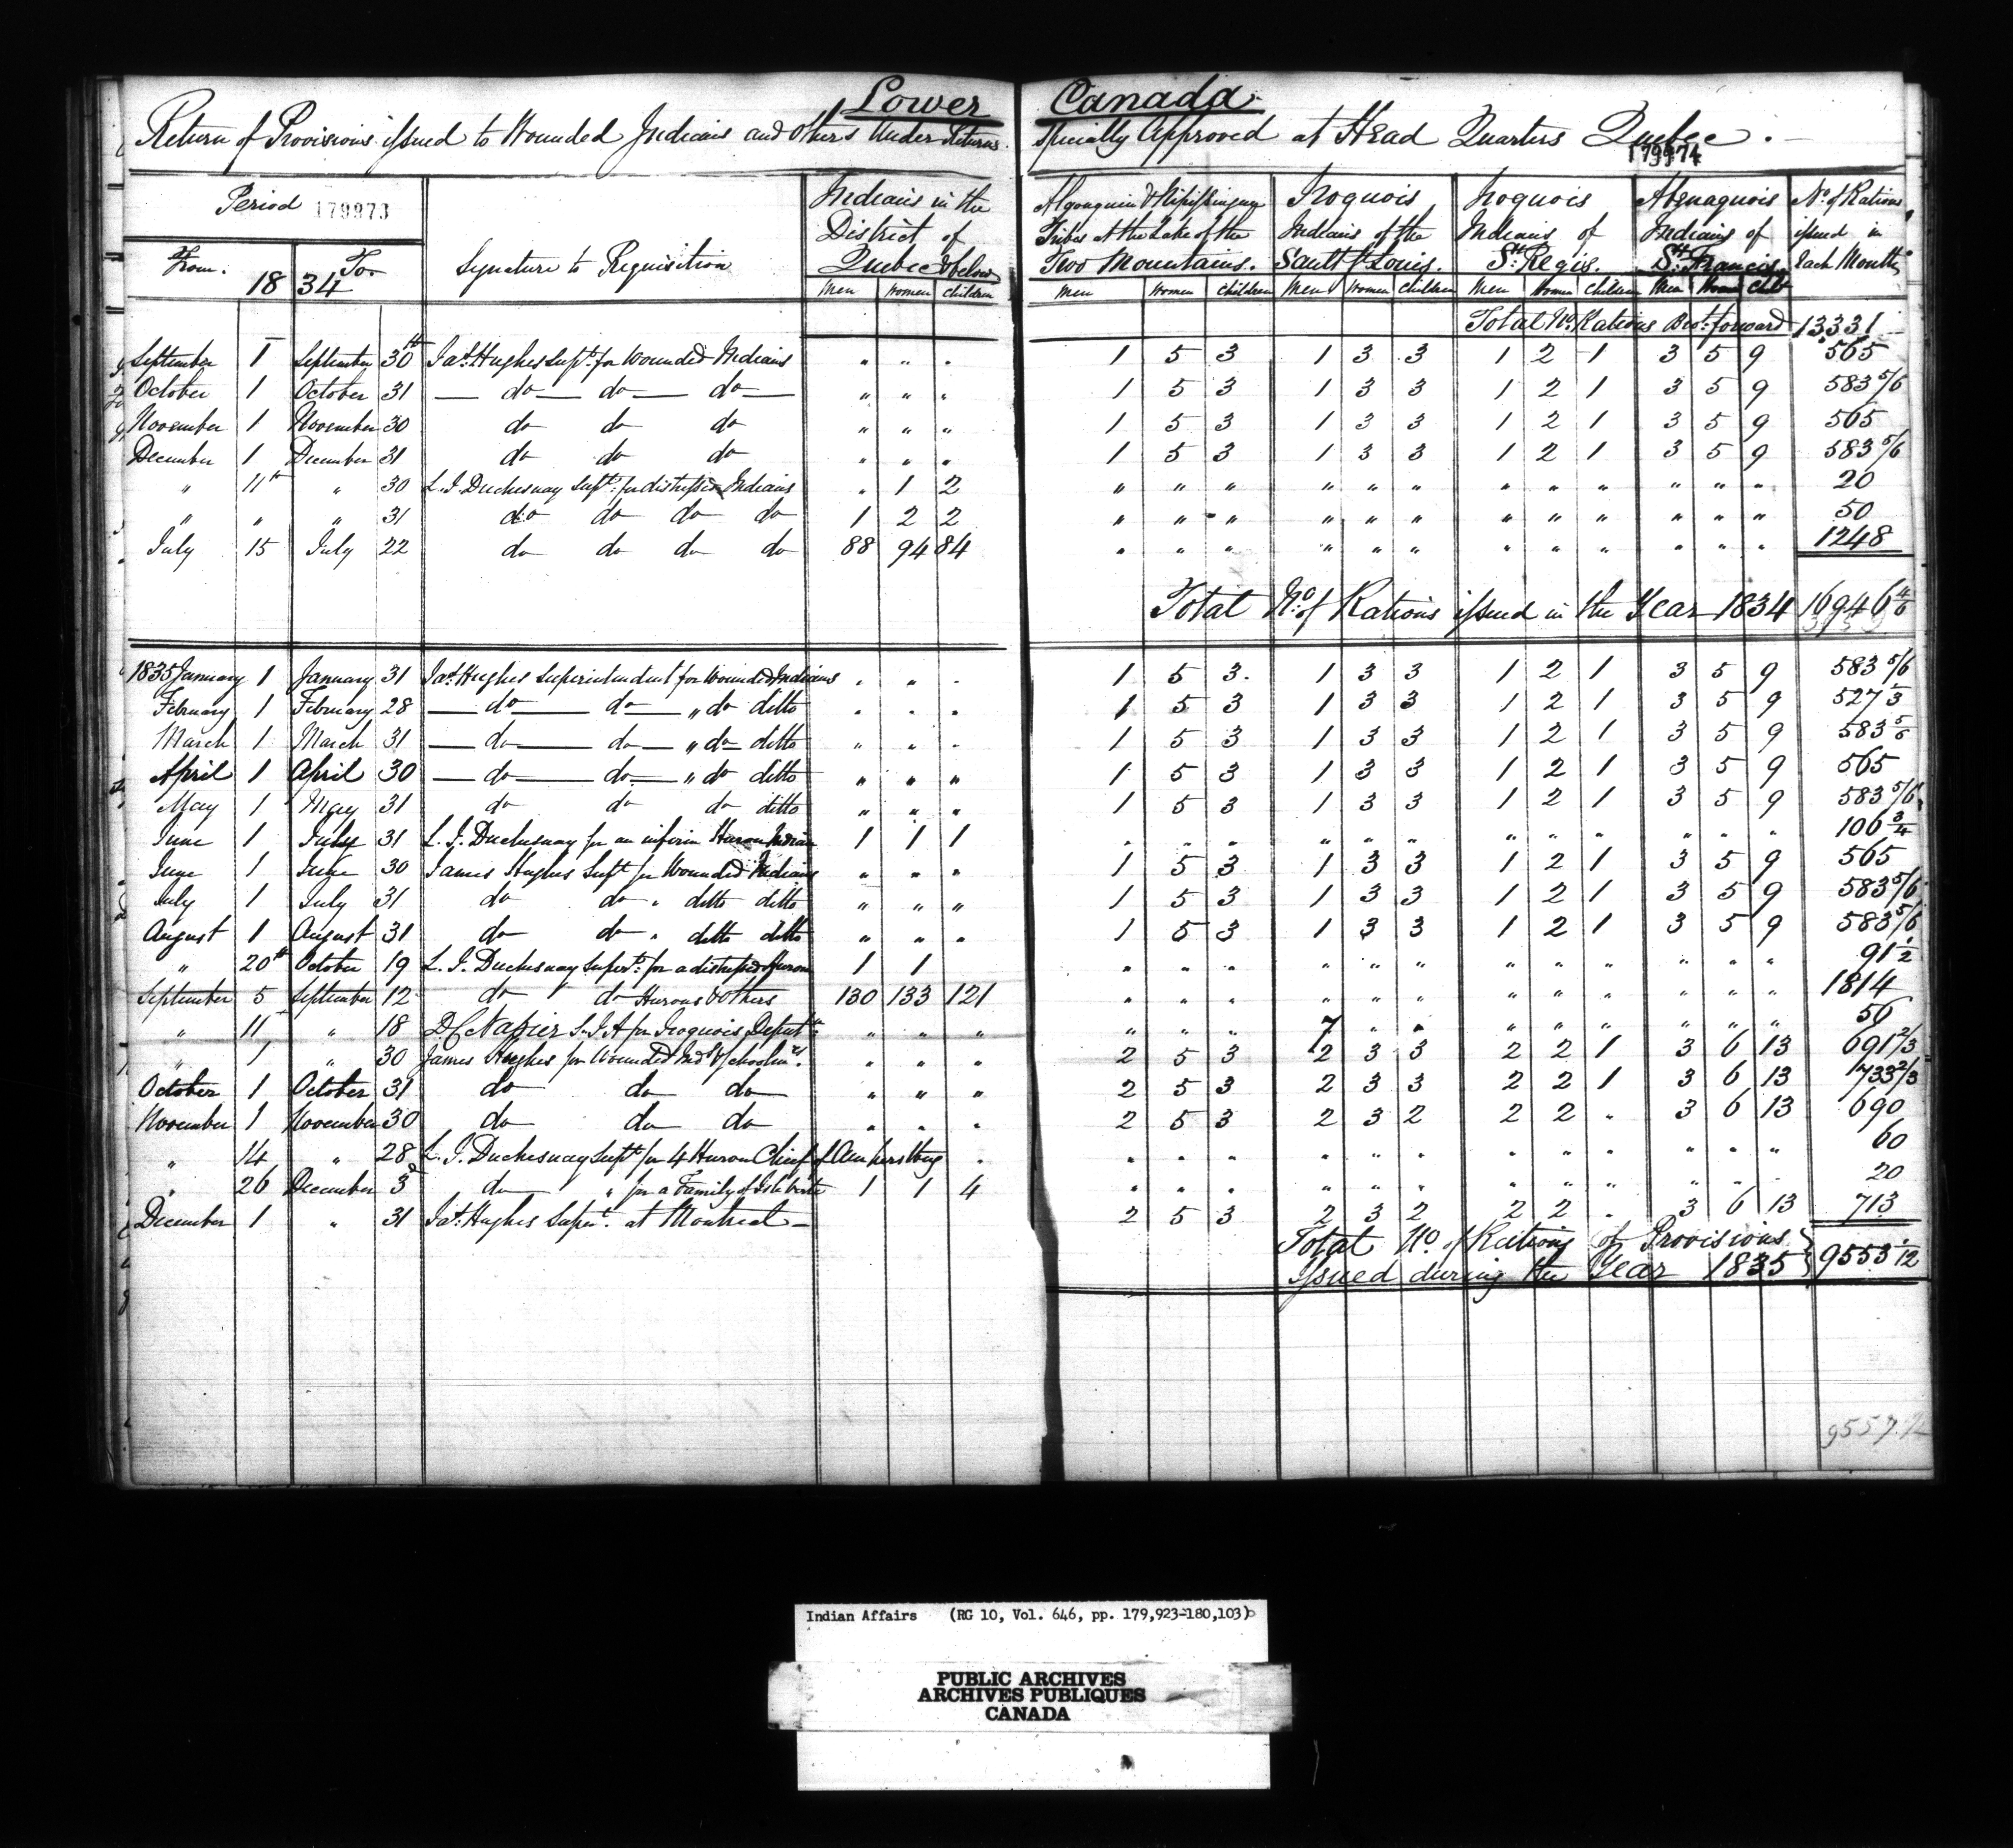 Lower Canada
Return of Provisions issued to Wounded Indians and Others Under Returns specially Approved at Head Quarters Quebec.
179974
Period 179973
From. 1834 To
Signature to Requisition
Indians in the District of Quebec & below
Algonquin & Nipissingue Tribes at the Lake of the Two Mountains.
Iroquois Indians of the Sault St. Louis.
Iroquois Indians of St. Regis.
Abenaquois Indians of St. Francis
No. of Rations issued in Each Month
Men Women Children Men Women Children Men Women Children Men Women Children Men Women Chil
Total No. Rations Brot. forward 13331
September 1 September 30th Jas. Hughes Supt. for Wounded Indians " " " 1 5 3 1 3 3 1 2 1 3 5 9 565
October 1 October 31 — do — do — do — " " " 1 5 3 1 3 3 1 2 1 3 5 9 583 5/6
November 1 November 30 do do do " " " 1 5 3 1 3 3 1 2 1 3 5 9 565
December 1 December 31 do do do " " " 1 5 3 1 3 3 1 2 1 3 5 9 583 5/6
" 11th " 30 L. J. Duchesnay Supt. for distressed Indians " 1 2 " " " " " " " " " " " " 20
" " " 31 do do do do 1 2 2 " " " " " " " " " " " " 50
July 15 July 22 do do do do 88 94 84 " " " " " " " " " " " " 1248
Total No. of Rations issued in the Year 1834 16946 4/6
1835 January 1 January 31 Jas. Hughes Superintendent for Wounded Indians " " " 1 5 3 1 3 3 1 2 1 3 5 9 583 5/6
February 1 February 28 — do — do — " do ditto " " " 1 5 3 1 3 3 1 2 1 3 5 9 527 1/3
March 1 March 31 — do — do — " do ditto " " " 1 5 3 1 3 3 1 2 1 3 5 9 583 5/6
April 1 April 30 — do — do — " do ditto " " " 1 5 3 1 3 3 1 2 1 3 5 9 565
May 1 May 31 do do do ditto " " " 1 5 3 1 3 3 1 2 1 3 5 9 583 5/6
June 1 July 31 L. J. Duchesnay for an infirm Huron Indian 1 1 1 " " " " " " " " " " " " 106 3/4
June 1 June 30 James Hughes Supt. for Wounded Indians " " " 1 5 3 1 3 3 1 2 1 3 5 9 565
July 1 July 31 do do " ditto ditto " " " 1 5 3 1 3 3 1 2 1 3 5 9 583 5/6
August 1 August 31 do do " ditto ditto " " " 1 5 3 1 3 3 1 2 1 3 5 9 583 5/6
" 20th October 19 L. J. Duchesnay Supert. for a distressed Huron 1 1 " " " " " " " " " " " " 91 1/2
September 5 September 12 do do Hurons & others 130 133 121 " " " " " " " " " " " " 1814
" 11 " 18 D C Napier S. I. A for Iroquois Deputtn. " " " " " " 7 " " " " " " " " 56
" 1 " 30 James Hughes for Wounded Inds. & Schoolmrs. " " " 2 5 3 2 3 3 2 2 1 3 6 13 691 2/3
October 1 October 31 do do do " " " 2 5 3 2 3 3 2 2 1 3 6 13 733 2/3
November 1 November 30 do do do " " " 2 5 3 2 3 2 2 2 " 3 6 13 690
" 14 " 28 L. J. Duchesnay Supt. for 4 Huron Chiefs of Amherstburg " " " " " " " " " " " " " 60
" 26 December 3d do " for a Family of Isle Verte 1 1 4 " " " " " " " " " " " " 20
December 1 " 31 Jas. Hughes Supert. at Montreal — 2 5 3 2 3 2 2 2 " 3 6 13 713
Total No. of Rations of Provisions
Issued during the Year 1835 } 9553 1/12
Indian Affairs (RG 10, Vol. 646, pp. 179,923-180,103)
PUBLIC ARCHIVES
ARCHIVES PUBLIQUES
CANADA